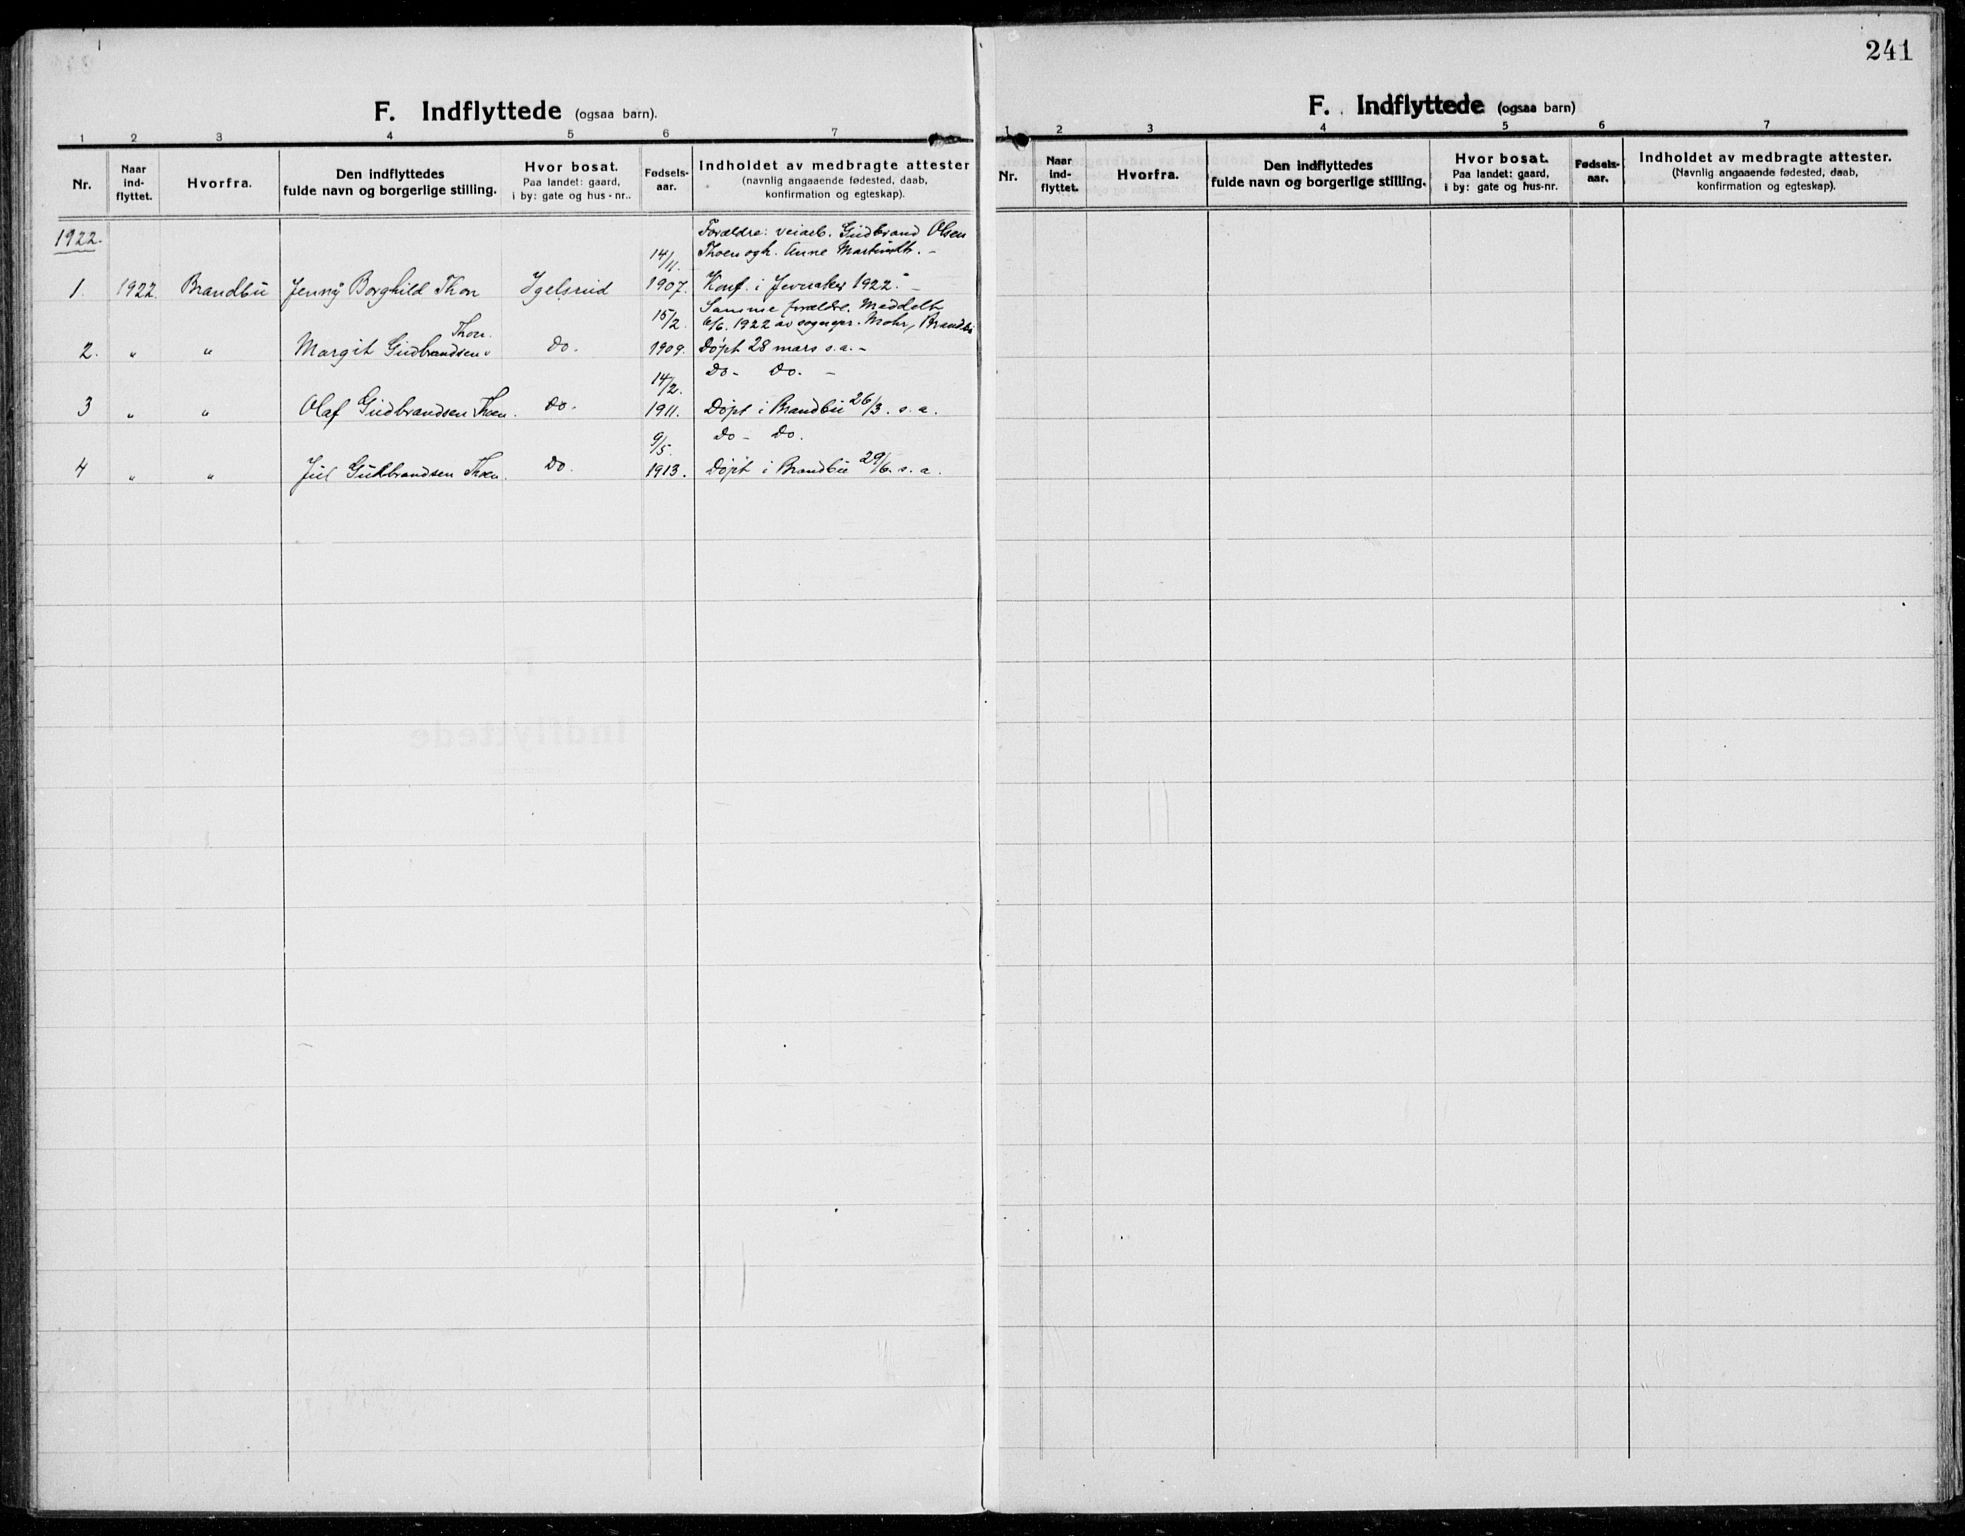 F. Indflyttede (ogsaa barn).
1 2 3 4 5 6 7
Nr. Naar ind- flyttet. Hvorfra. Den indflyttedes fulde navn og borgerlige stilling. Hvor bosat. Paa landet: gaard, i by: gate og hus-nr.. Fødsels- aar. Indholdet av medbragte attester (navnlig angaaende fødested, daab, konfirmation og egteskap).
1922.
Forældre: veiarb. Gudbrand Olsen
14/11. Thoen og h. Anne
1. 1922. Brandbu Jenny Borghild Thon Igelsrud 1907. Konf. i Jevnaker 1922.
15/2. Samme forældre. Meddelt
6/6. 1922 av sognepr. Mohr, Brandbu
Thon.
2. " " Margit Gudbrandsen Do. 1909. Døpt 28 mars s.a. –
14/2. Do – Do. –
3 " " Olaf Gudbrandsen Thoen. Do. 1911. Døpt i Brandbu 26/3. s. a.
9/5. Do – Do.
4 " " Jul Gudbrandsen Thoen. Do. 1913. Døpt i Brandbu 29/6. s. a.
241
F. Indflyttede (ogsaa barn)
1 2 3 4 5 6 7
Nr. Naar ind- flyttet. Hvorfra. Den indflyttedes fulde navn og borgerlige stilling. Hvor bosat. Paa landet: gaard, i by: gate og hus-nr. Fødsels- aar. Indholdet av medbragte attester. (Navnlig angaaende fødested, daab, konfirmation og egteskap).